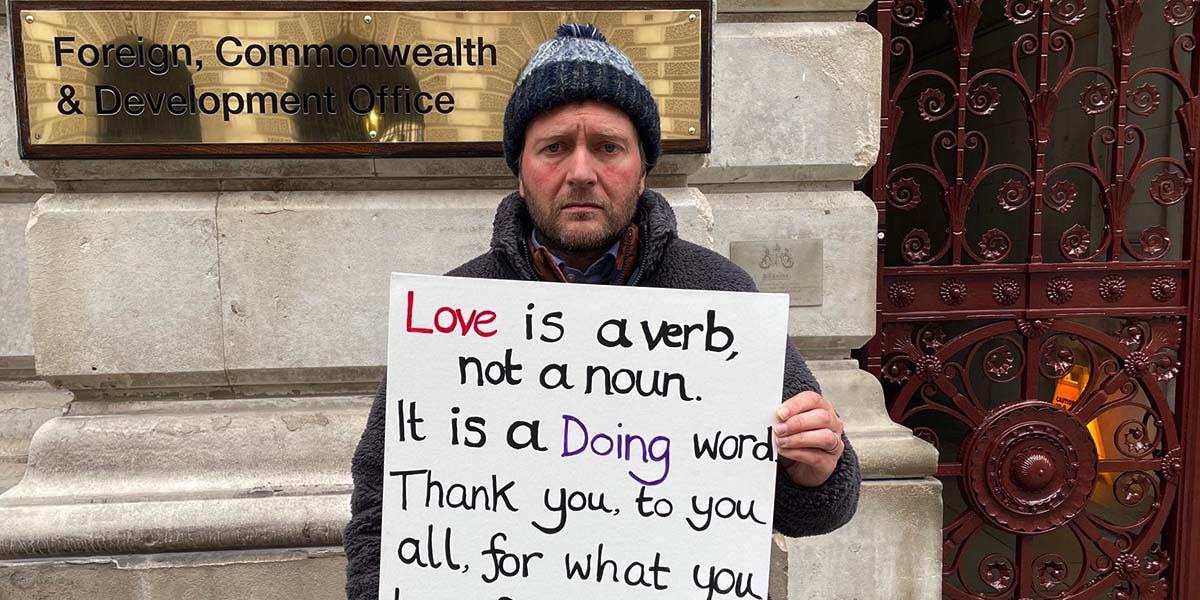 Foreign, Commonwealth
& Development Office
Love is a verb,
not a noun.
It is a Doing word.
Thank you, to you
all, for what you
CAUTION